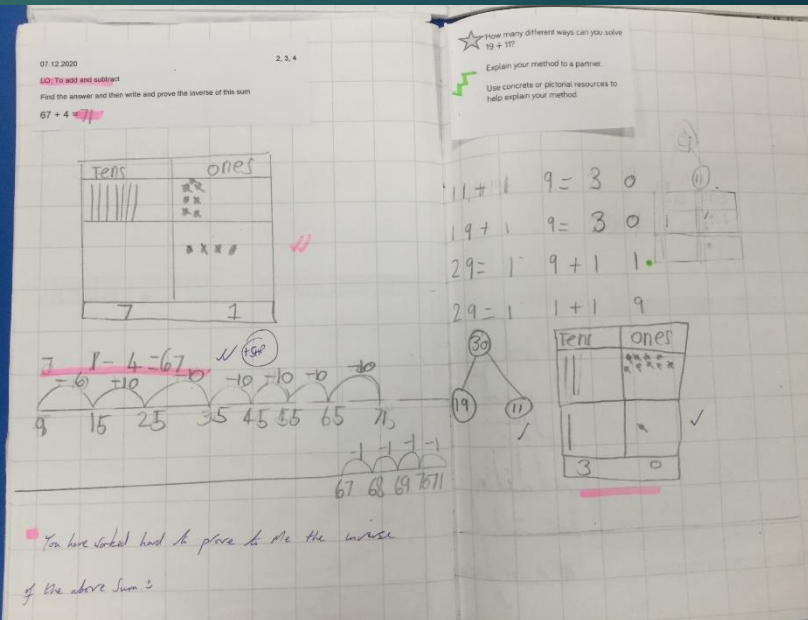 07.12.2020
2, 3, 4
LO: To add and subtract
Find the answer and then write and prove the inverse of this sum
67 + 4 = 71
Tens ones
7 1
7 1 - 4 = 67
-10 -10 -10 -10
15 25 35 45 55 65
-1 -1 -1 -1
67 68 69 70 71
You have worked hard to prove to me the inverse
of the above sum :
How many different ways can you solve
19 + 11?
Explain your method to a partner.
Use concrete or pictorial resources to
help explain your method.
11 + 1 9 = 3 0
19 + 1 9 = 3 0
29 = 1 9 + 1 1
29 = 1 1 + 1 9
30
19 11
Tens ones
3 0
9
11